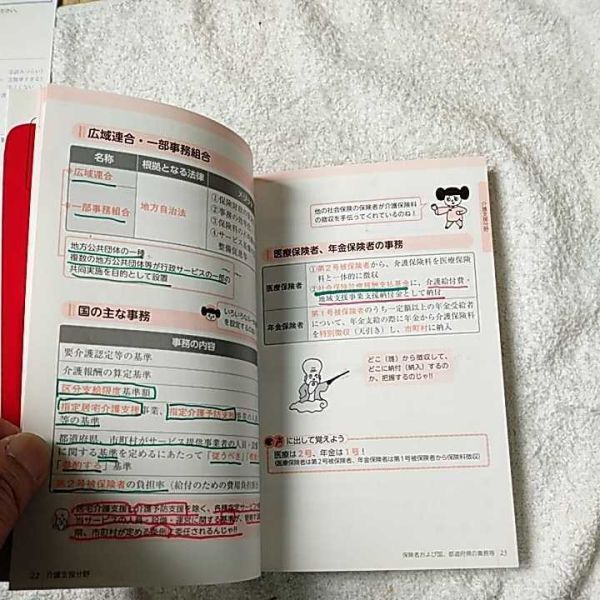 広域連合・一部事務組合
名称
根拠となる法律
広域連合
一部事務組合
地方自治法
地方公共団体の一種
複数の地方公共団体等が行政サービスの一部の
共同実施を目的として設置
国の主な事務
事務の内容
要介護認定等の基準
介護報酬の算定基準
区分支給限度基準額
指定居宅介護支援事業、指定介護予防支援事業の人
都道府県、市町村がサービス提供事業者の人員・設
に関する基準を定めるにあたって「従うべき」
基準
第2号被保険者の負担率(給付のための費用負担割合
居宅介護支援と介護予防支援を除く、各種
県、市町村が定める条例に委任されるんじゃ!!
22 介護支援分野
他の社会保険の保険者が介護保険料
の徴収を手伝ってくれているのね!
介護支援分野
医療保険者、年金保険者の事務
医療保険者
①第2号被保険者から、介護保険料を医療保険
料と一体的に徴収
②社会保険診療報酬支払基金に、介護給付費・
地域支援事業支援納付金として納付
年金保険者
第1号被保険者のうち一定額以上の年金受給者
について、年金支給の際に年金から介護保険料
を特別徴収(天引き)し、市町村に納入
どこ(誰)から徴収して、
どこに納付(納入)するの
か、把握するのじゃ!!
に出して覚えよう
医療は2号、年金は1号!
(医療保険者は第2号被保険者、年金保険者は第1号被保険者から保険料徴収)
保険者および国、都道府県の責務等 23